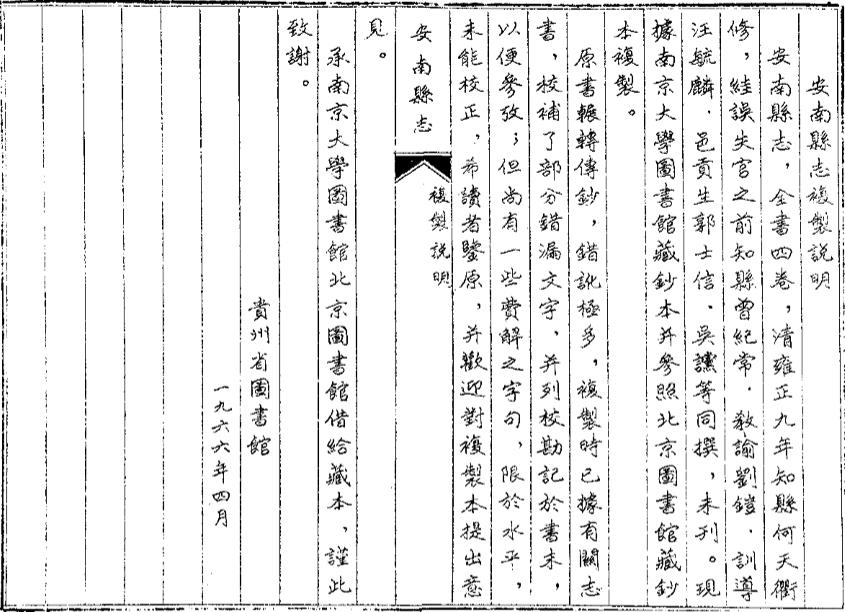 安南縣志複製說明
安南縣志，全書四卷，清雍正九年知縣何天衢
修，絓誤失官之前知縣曾紀常．教諭劉鎧．訓導
汪毓麟．邑貢生郭士信．吳讜等同撰，未刊。現
據南京大學圖書館藏鈔本并參照北京圖書館藏鈔
本複製。
原書輾轉傳鈔，錯訛極多，複製時已據有關志
書，校補了部分錯漏文字，并列校勘記於書末，
以便參攷；但尚有一些費解之字句，限於水平，
未能校正，希讀者鑒原，并歡迎對複製本提出意
安南縣志
複製說明
見。
承南京大學圖書館北京圖書館借給藏本，謹此
致謝。
貴州省圖書館
一九六六年四月